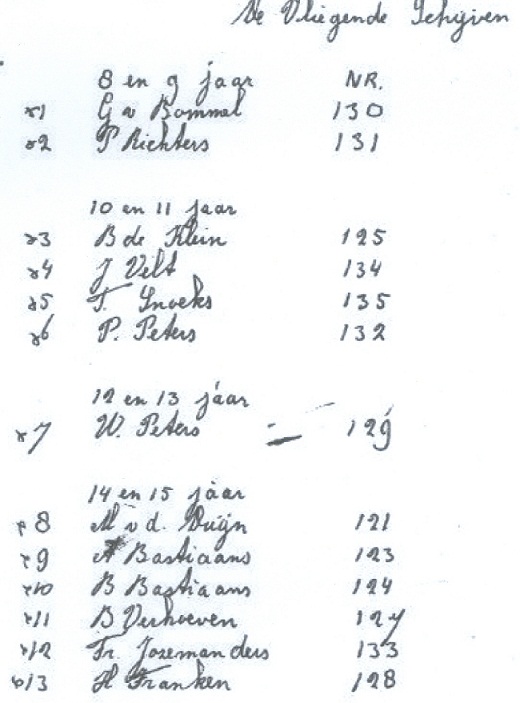 De Vliegende Schijven
8 en 9 jaar NR.
x1 G v Bommel 130
x2 P Richters 131
10 en 11 jaar
x3 B de Klein 125
x4 J Velt 134
x5 T. Snoeks 135
x6 P. Peters 132
12 en 13 jaar
x7 W. Peters - 129
14 en 15 jaar
x8 M v d. Duijn 121
x9 A Bastiaans 123
x10 B Bastiaans 124
x11 B Verhoeven 127
x12 Fr. Jozemanders 133
x13 H Franken 128